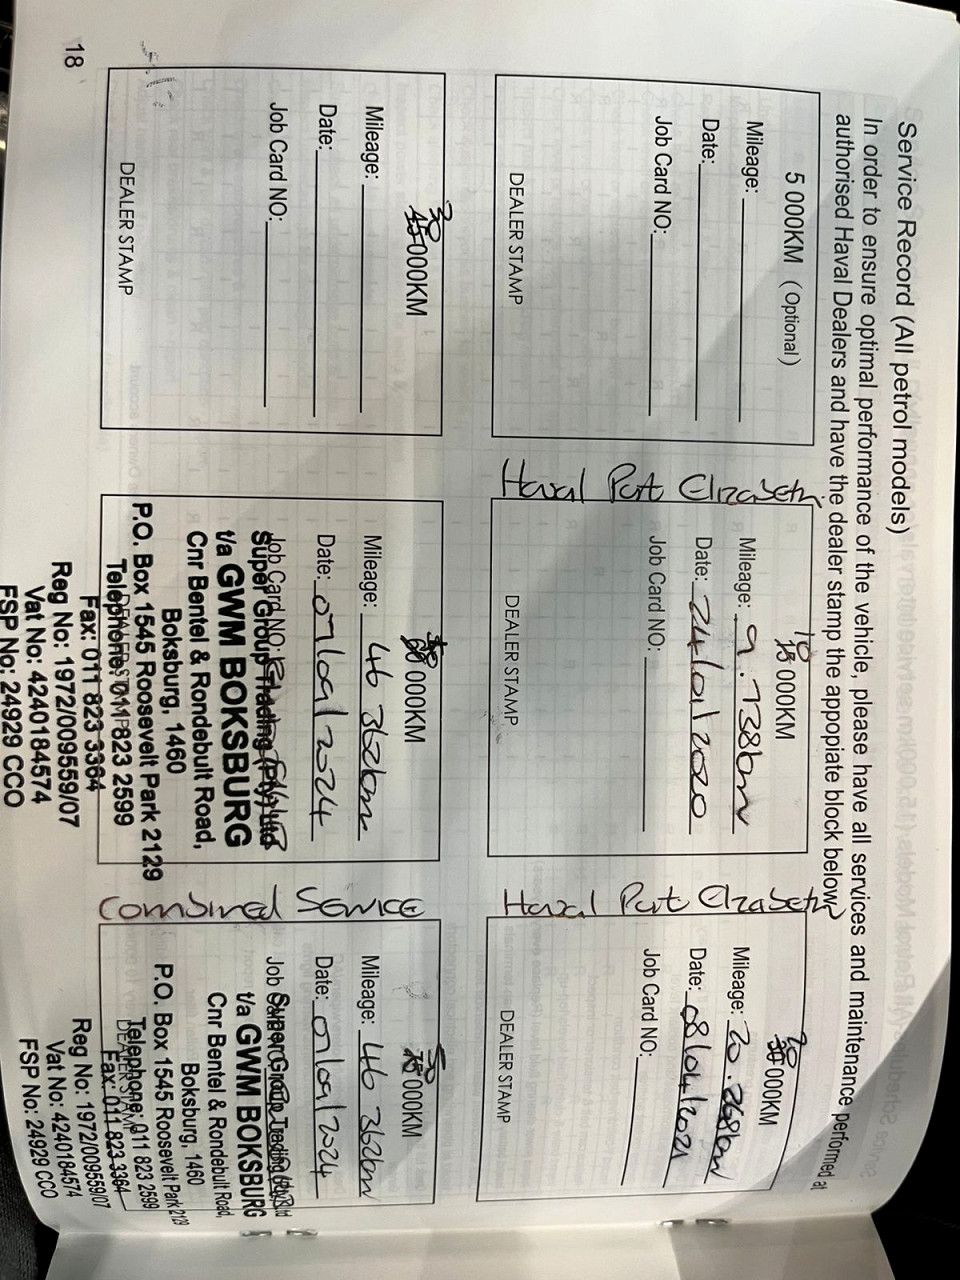 Service Record (All petrol models)
In order to ensure optimal performance of the vehicle, please have all services and maintenance performed at
authorised Haval Dealers and have the dealer stamp the appopiate block below
5 000KM (Optional)
Mileage:
Date:
Job Card NO:
DEALER STAMP
Haval Port Elizabeth
10
15 000KM
Mileage: 9.738km
Date: 24/01/2020
Job Card NO:
DEALER STAMP
Haval Port Elizabeth
20
30 000KM
Mileage: 20.268km
Date: 08/04/2021
Job Card NO:
DEALER STAMP
30
45 000KM
Mileage:
Date:
Job Card NO:
DEALER STAMP
40
60 000KM
Mileage: 46 362km
Date: 07/09/2024
Job Card NO:
Super Group Trading (Pty) Ltd
t/a GWM BOKSBURG
Cnr Bentel & Rondebult Road,
Boksburg, 1460
P.O. Box 1545 Roosevelt Park 2129
DEALER STAMP
Telephone: 011 823 2599
Fax: 011 823 3364
Reg No: 1972/009559/07
Vat No: 4240184574
FSP No: 24929 CCO
Combined Service
50
75 000KM
Mileage: 46 362km
Date: 07/09/2024
Job
Super Group Trading
t/a GWM BOKSBURG
Cnr Bentel & Rondebult Road,
Boksburg, 1460
P.O. Box 1545 Roosevelt Park 2129
Telephone: 011 823 2599
DEALER STAMP
Fax: 011 823 3364
Reg No: 1972/009559/07
Vat No: 4240184574
FSP No: 24929 CCO
18